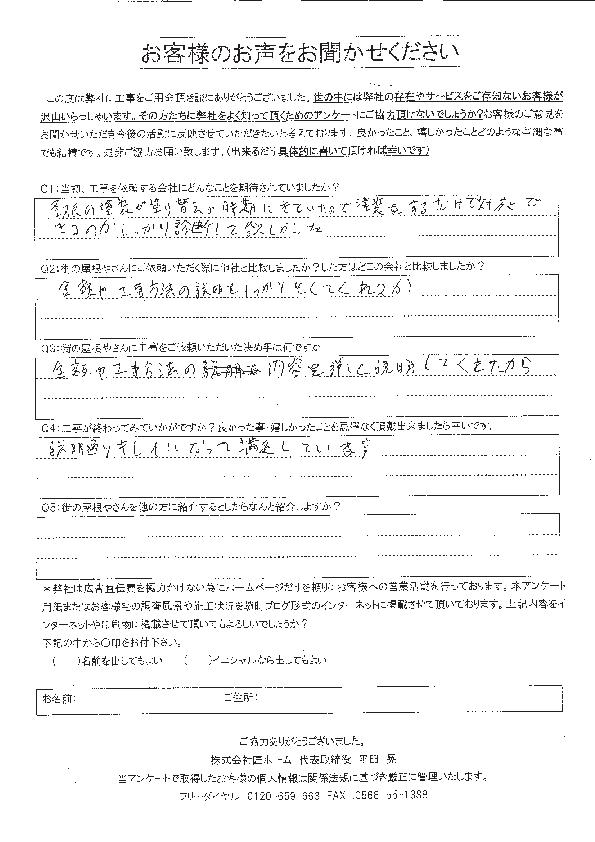 お客様のお声をお聞かせください
この度は弊社に工事をご用命頂き誠にありがとうございました。世の中には弊社の存在やサービスをご存知ないお客様が
沢山いらっしゃいます。その方たちに弊社をよく知って頂くためのアンケートにご協力頂けないでしょうか?お客様のご意見を
お聞かせいただき今後の活動に反映させていただきたいと考えております。良かったこと、嬉しかったことどのような
でも結構です。是非ご協力お願い致します。(出来るだけ具体的に書いて頂ければ幸いです)
Q1:当初、工事を依頼する会社にどんなことを期待されていましたか?
屋根の塗装が塗り替える時期にきていたので塗装をするだけで対応で
きるのかしっかり診断して欲しかった
Q2:街の屋根やさんにご依頼いただく際に他社と比較しましたか?した方はどこの会社と比較しましたか?
金額や工事方法の説明を
Q3:街の屋根やさんに工事をご依頼いただいた決め手は何ですか
金額や工事方法の 内容を詳しく説明してくれたから
Q4:工事が終わってみていかがですか?良かった事・嬉しかったことを忌憚なく頂戴出来ましたら幸いです。
説明通りキレイになって満足しています
Q5:街の屋根やさんを他の方に紹介するとしたらなんと紹介しますか?
*弊社は広告宣伝費を極力かけない為にホームページだけを頼りにお客様への営業活動を行っております。本アンケート
用紙またはお客様宅の調査風景や施工状況を随時ブログ形式のインターネットに掲載させて頂いております。上記内容をイ
ンターネットや印刷物に掲載させて頂いてもよろしいでしょうか?
下記の中から○印をお付下さい。
( )名前を出してもよい ( )イニシャルなら出してもよい
お名前: ご住所:
ご協力ありがとうございました。
株式会社匠ホーム 代表取締役
当アンケートで取得したお客様の個人情報は関係法規に基づき厳正に管理いたします。
フリーダイヤル 0120-659-663 FAX